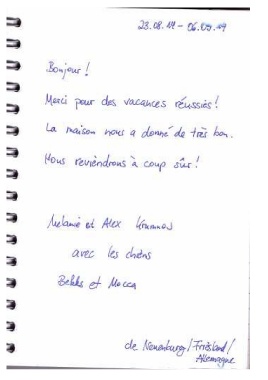 23.08.19 - 06.09.19
Bonjour!
Merci pour des vacances réussies!
La maison nous a donné de très bon.
Nous reviendrons à coup sûr!
Melanie et Alex
avec les chiens
et Mocca
de Neuenburg / Friesland /
Allemagne